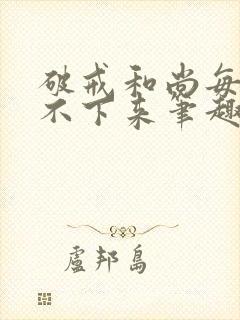 破戒和尚每
不下来筆趣
盧邦島